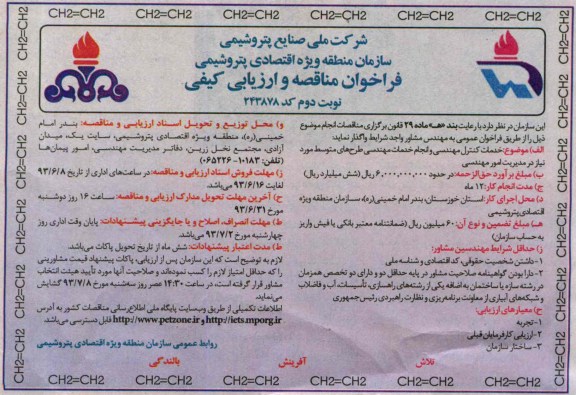 CH2=CH2 CH2=CH2 CH2=CH2 CH2=CH2 CH2=CH2 CH2=CH2 CH2=CH2
شرکت ملی صنایع پتروشیمی
سازمان منطقه ویژه اقتصادی پتروشیمی
فراخوان مناقصه و ارزیابی کیفی
نوبت دوم کد ۲۴۳۸۷۸
این سازمان در نظر دارد با رعایت بند «هـ» ماده ۲۹ قانون برگزاری مناقصات انجام موضوع
ذیل را از طریق فراخوان عمومی به مهندس مشاور واجد شرایط واگذار نماید:
الف) موضوع: خدمات کنترل مهندسی و انجام خدمات مهندسی طرح‌های متوسط مورد
نیاز در مدیریت امور مهندسی
ب) مبلغ برآورد حق‌الزحمه: در حدود ۶,۰۰۰,۰۰۰,۰۰۰ ریال (شش میلیارد ریال)
ج) مدت انجام کار: ۱۲ ماه
د) محل اجرای کار: استان خوزستان، بندر امام خمینی(ره)، سازمان منطقه ویژه
اقتصادی پتروشیمی
هـ) مبلغ تضمین و نوع آن: ۶۰ میلیون ریال (ضمانتنامه معتبر بانکی یا فیش واریز
به حساب سازمان)
ز) حداقل شرایط مهندسین مشاور:
۱- داشتن شخصیت حقوقی، کد اقتصادی و شناسه ملی
۲- دارا بودن گواهینامه صلاحیت مشاور در پایه حداقل دو و دارای دو تخصص همزمان
در رشته سازه یا ساختمان به اضافه یکی از رشته‌های راهسازی، تأسیسات آب و فاضلاب
و شبکه‌های آبیاری از معاونت برنامه‌ریزی و نظارت راهبردی رئیس‌جمهوری
ح) معیارهای ارزیابی:
۱- تجربه
۲- ارزیابی کارفرمایان قبلی
۳- ساختار سازمان
و) محل توزیع و تحویل اسناد ارزیابی و مناقصه: بندر امام
خمینی(ره)، منطقه ویژه اقتصادی پتروشیمی، سایت یک، میدان
آزادی، مجتمع نخل زرین، دفاتر مدیریت مهندسی، امور پیمان‌ها
(تلفن: ۱۰۱۸۳-۰۶۵۲۲۶)
ز) مهلت فروش اسناد ارزیابی و مناقصه: در ساعت‌های اداری از تاریخ ۹۳/۶/۸
لغایت ۹۳/۶/۱۶ می‌باشد.
ح) آخرین مهلت تحویل مدارک ارزیابی و مناقصه: ساعت ۱۶ روز دوشنبه
مورخ ۹۳/۶/۳۱
ط) مهلت انصراف، اصلاح و یا جایگزینی پیشنهادات: پایان وقت اداری روز
چهارشنبه مورخ ۹۳/۷/۲ می‌باشد.
ظ) مدت اعتبار پیشنهادات: شش ماه از تاریخ تحویل پاکات می‌باشد.
لازم به توضیح است که این سازمان پس از ارزیابی، پاکات پیشنهاد قیمت مشاورینی
را که حداقل امتیاز لازم را کسب نموده‌اند و صلاحیت آنها مورد تأیید هیئت انتخاب
مشاور قرار گرفته است، در ساعت ۱۴:۳۰ عصر روز سه‌شنبه مورخ ۹۳/۷/۸ گشایش
می‌نماید.
اطلاعات تکمیلی از طریق وب‌سایت پایگاه ملی اطلاع‌رسانی مناقصات کشور به آدرس
http://iets.mporg.ir و http://www.petzone.ir قابل دسترسی می‌باشد.
روابط عمومی سازمان منطقه ویژه اقتصادی پتروشیمی
تلاش آفرینش بالندگی
CH2=CH2 CH2=CH2 CH2=CH2 CH2=CH2 CH2=CH2 CH2=CH2 CH2=CH2